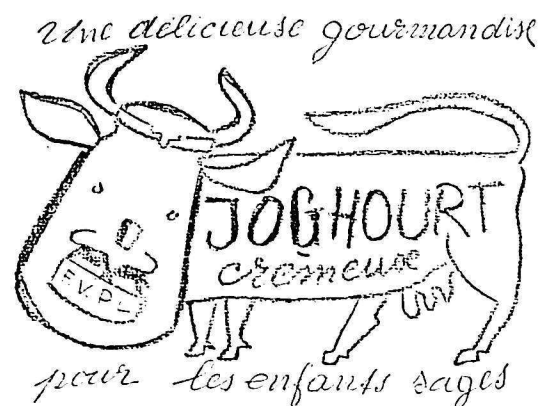 Une délicieuse gourmandise
JOGHOURT
crèmeuse
F.V.P.L
pour les enfants sages